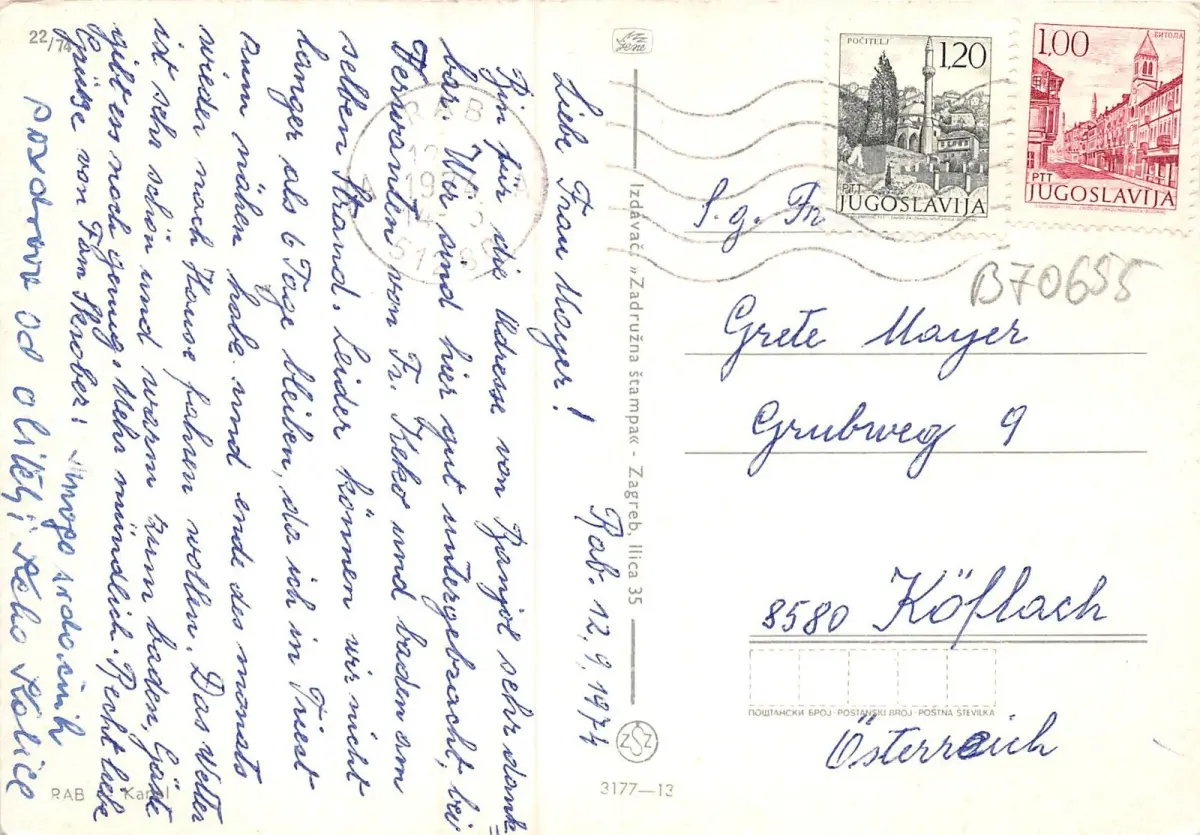 22/74
Liebe Frau Mayer!
Rab. 12.9.1974
Bin für die Adresse von Banjol sehr dank=
bar. Wir sind hier gut untergebracht, bei
Verwandten von Fr. Keko und baden am
selben Strand. Leider können wir nicht
länger als 6 Tage bleiben, da ich in Triest
zum nähen habe und ende des monats
wieder nach Hause fahren wollen. Das Wetter
ist sehr schön und warm zum baden, Gäste
gibt es noch genug. Mehr mündlich. Recht liebe
Grüße von Fam Skrober!
mnogo srdačnih
pozdrava od obitelji Keko Kolice
RAB Kanal
Izdavač: »Zadružna štampa« - Zagreb, Ilica 35
3177—13
RAB
POČITELJ
1,20
PTT
JUGOSLAVIJA
БИТОЛА
1.00
PTT
JUGOSLAVIJA
B70655
S. g. Fr
Grete Mayer
Grubweg 9
8580 Köflach
ПОШТАНСКИ БРОЈ - POŠTANSKI BROJ - POŠTNA ŠTEVILKA
Österreich